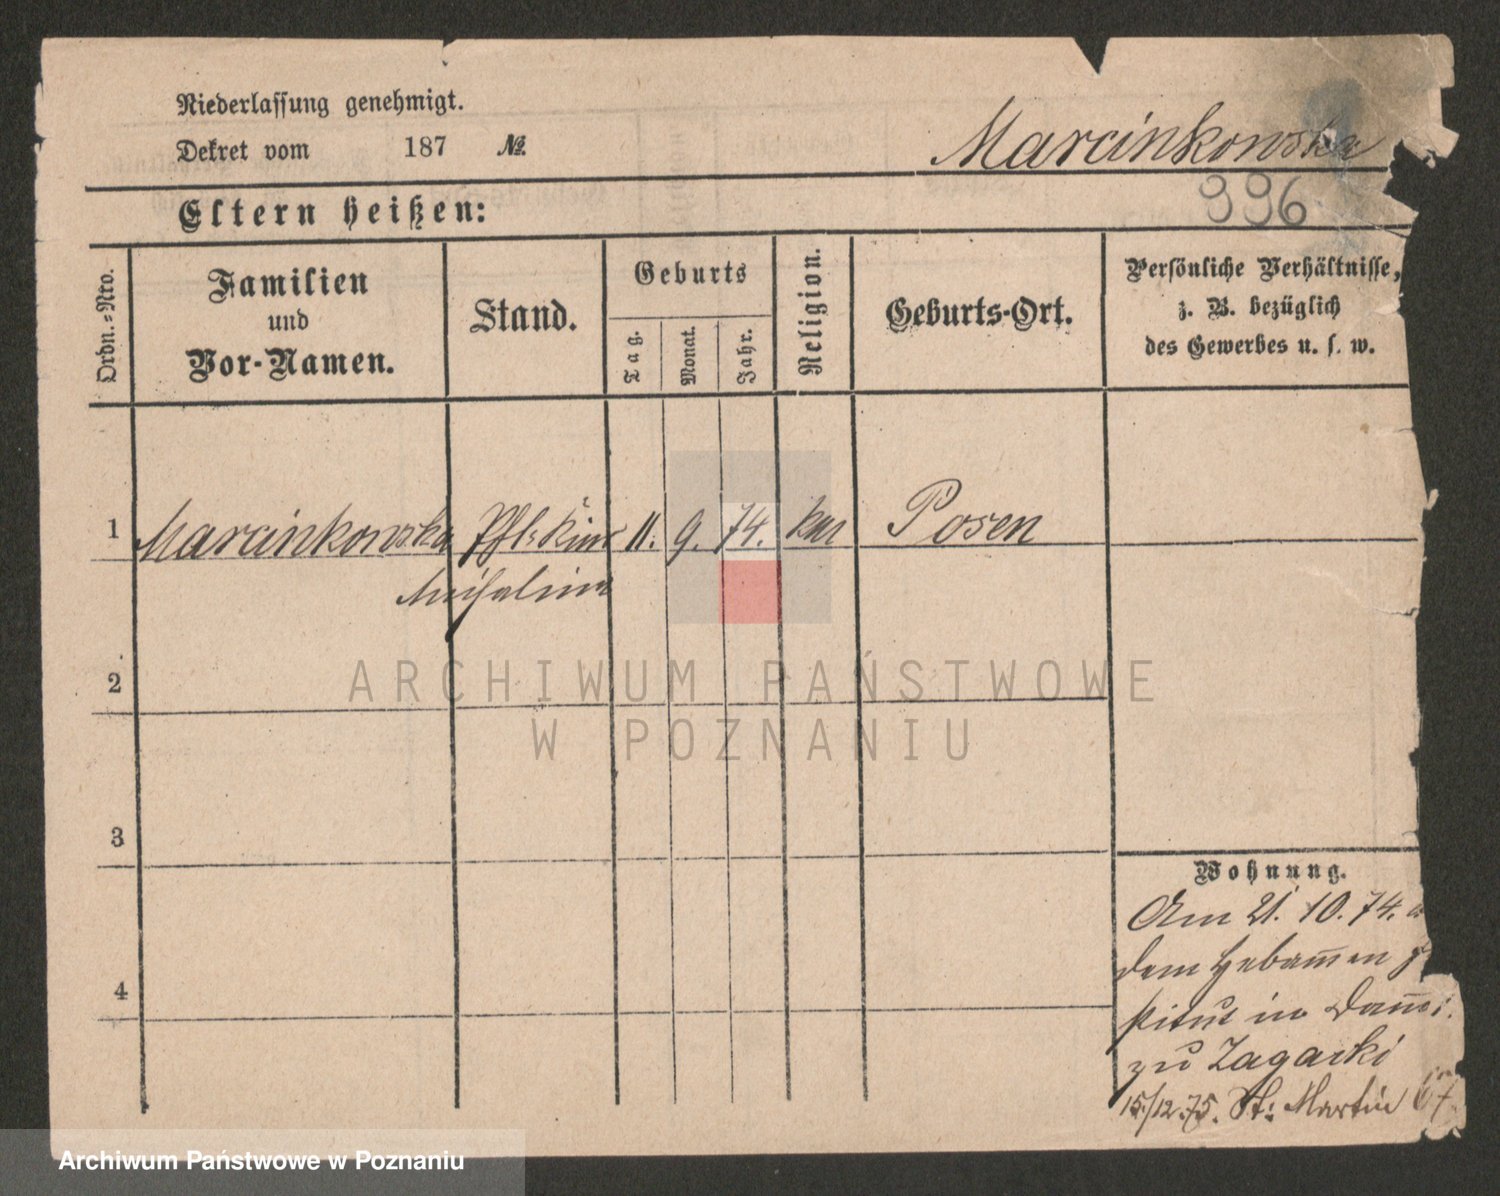 Niederlassung genehmigt.
Dekret vom 187 №
Marcinkowska
996
Eltern heißen:
Ordn.-Nro.
Familien
und
Vor-Namen.
Stand.
Geburts
Tag.
Monat.
Jahr.
Religion.
Geburts-Ort.
Persönliche Verhältnisse,
z. B. bezüglich
des Gewerbes u. s. w.
1 Marcinkowska 11. 9. 74. Posen
Michalina
ARCHIWUM PAŃSTWOWE
W POZNANIU
2
3
4
Wohnung.
Am 21. 10. 74.
dem Hebam̅en
stitut in
zu Zagacki
15/12.75. St: Martin 67
Archiwum Państwowe w Poznaniu